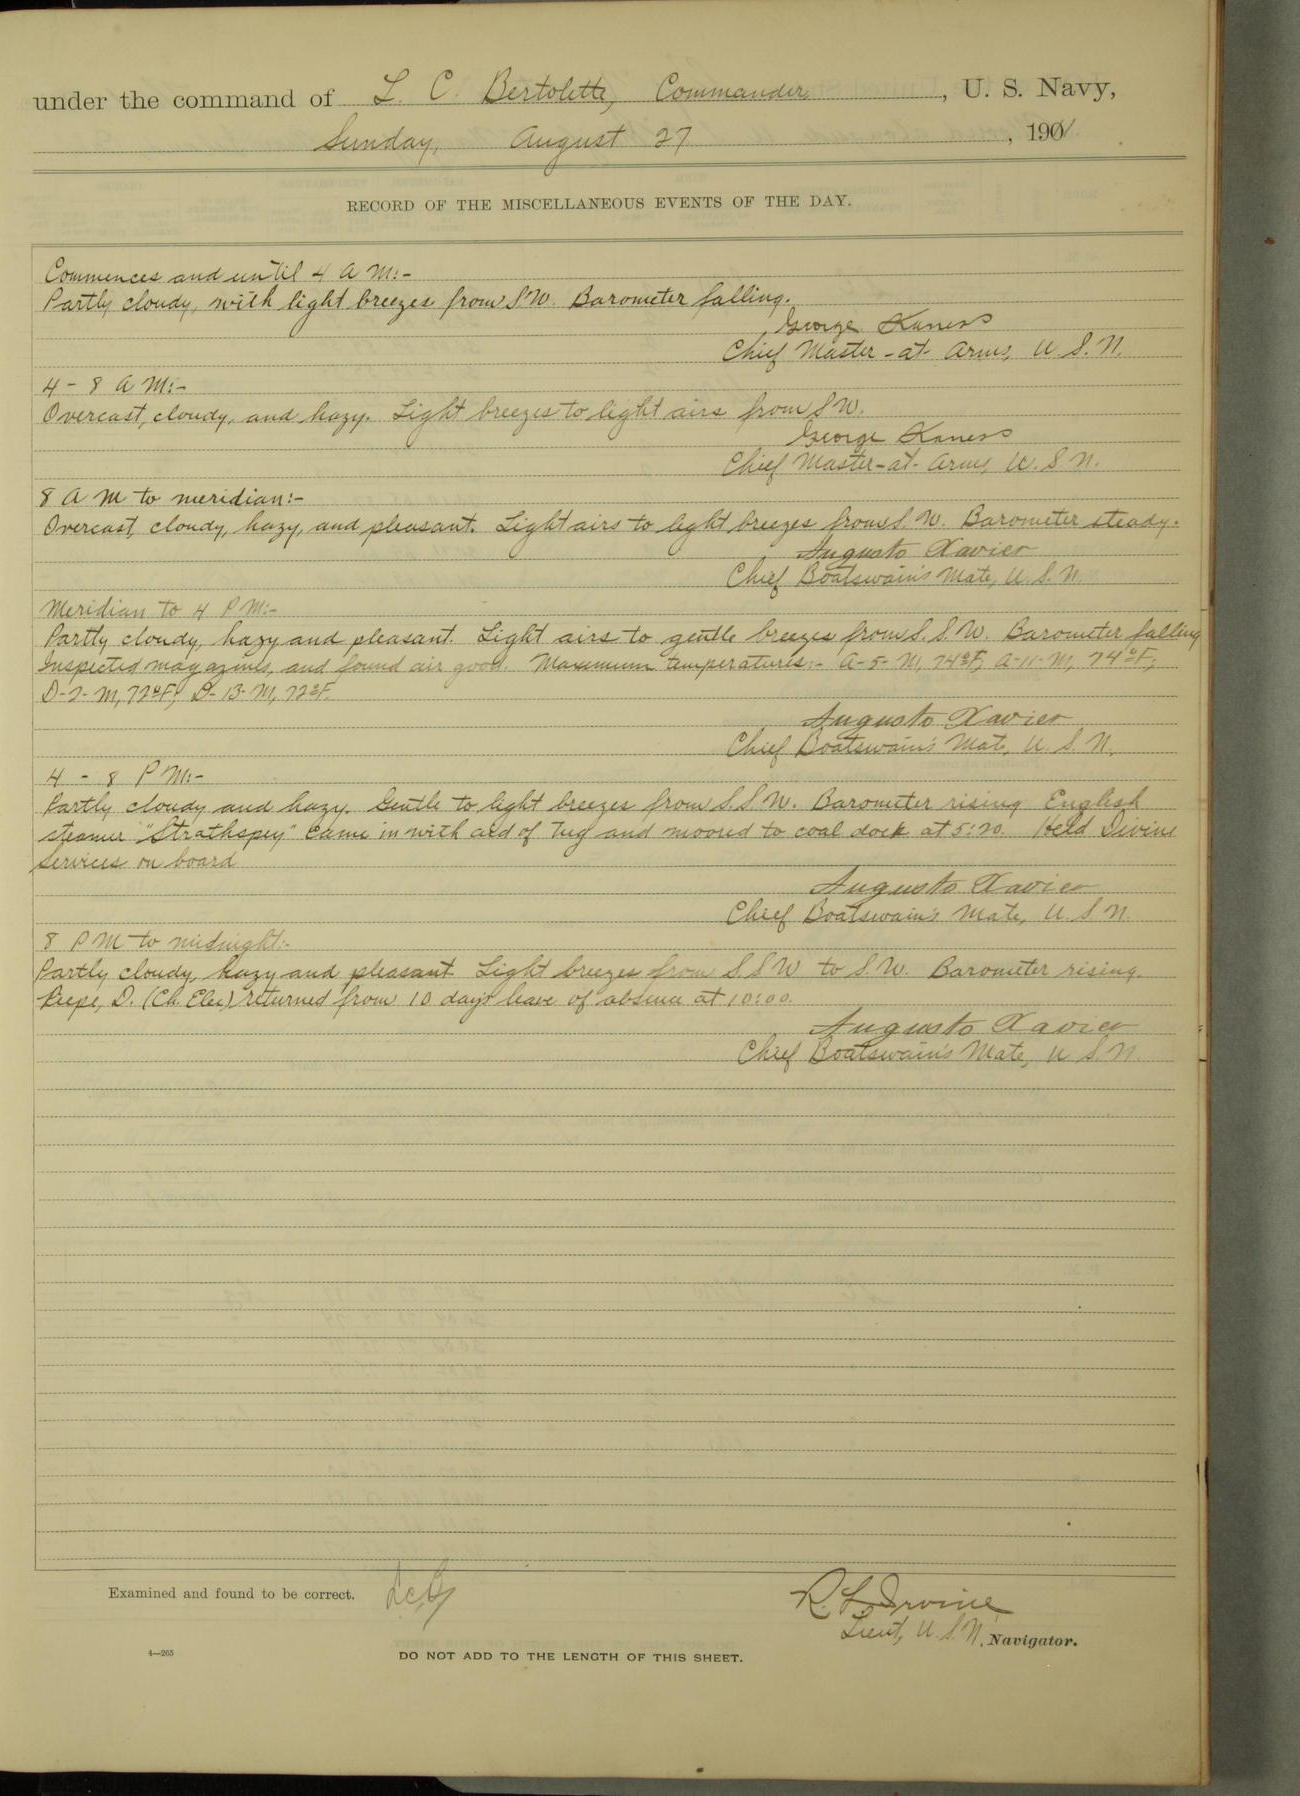 under the command of L. C. Bertolette, Commander, U. S. Navy,
Sunday, August 27, 1901
RECORD OF THE MISCELLANEOUS EVENTS OF THE DAY.
Commences and until 4 A M:-
Partly cloudy, with light breezes from S W. Barometer falling.
George
Chief Master-at-Arms, U. S. N.
4 - 8 A M:-
Overcast, cloudy, and hazy. Light breezes to light airs from S W.
George
Chief Master-at-Arms, U. S. N.
8 A M to meridian:-
Overcast, cloudy, hazy, and pleasant. Light airs to light breezes from S. W. Barometer steady.
Augusto Xavier
Chief Boatswain's Mate, U. S. N.
Meridian to 4 P M:-
Partly cloudy, hazy and pleasant. Light airs to gentle breezes from S. S. W. Barometer falling
Inspected magazines, and found air good. Maximum temperatures:- A-5-M, 74°F; A-11-M, 74°F;
D-7-M, 72°F; D-13-M, 72°F.
Augusto Xavier
Chief Boatswain's Mate, U. S. N.
4 - 8 P M:-
Partly cloudy and hazy. Gentle to light breezes from S. S. W. Barometer rising English
steamer "Strathspey" came in with aid of Tug and moored to coal dock at 5:20. Held Divine
services on board
Augusto Xavier
Chief Boatswain's Mate, U. S. N.
8 P M to midnight:-
Partly cloudy, hazy and pleasant. Light breezes from S S W to S. W. Barometer rising.
D. (Ch. Elec) returned from 10 days leave of absence at 10:00.
Augusto Xavier
Chief Boatswain's Mate, U S. N.
Examined and found to be correct. LCB
R. L. Irvine
Lieut, U. S. N., Navigator.
4—265
DO NOT ADD TO THE LENGTH OF THIS SHEET.